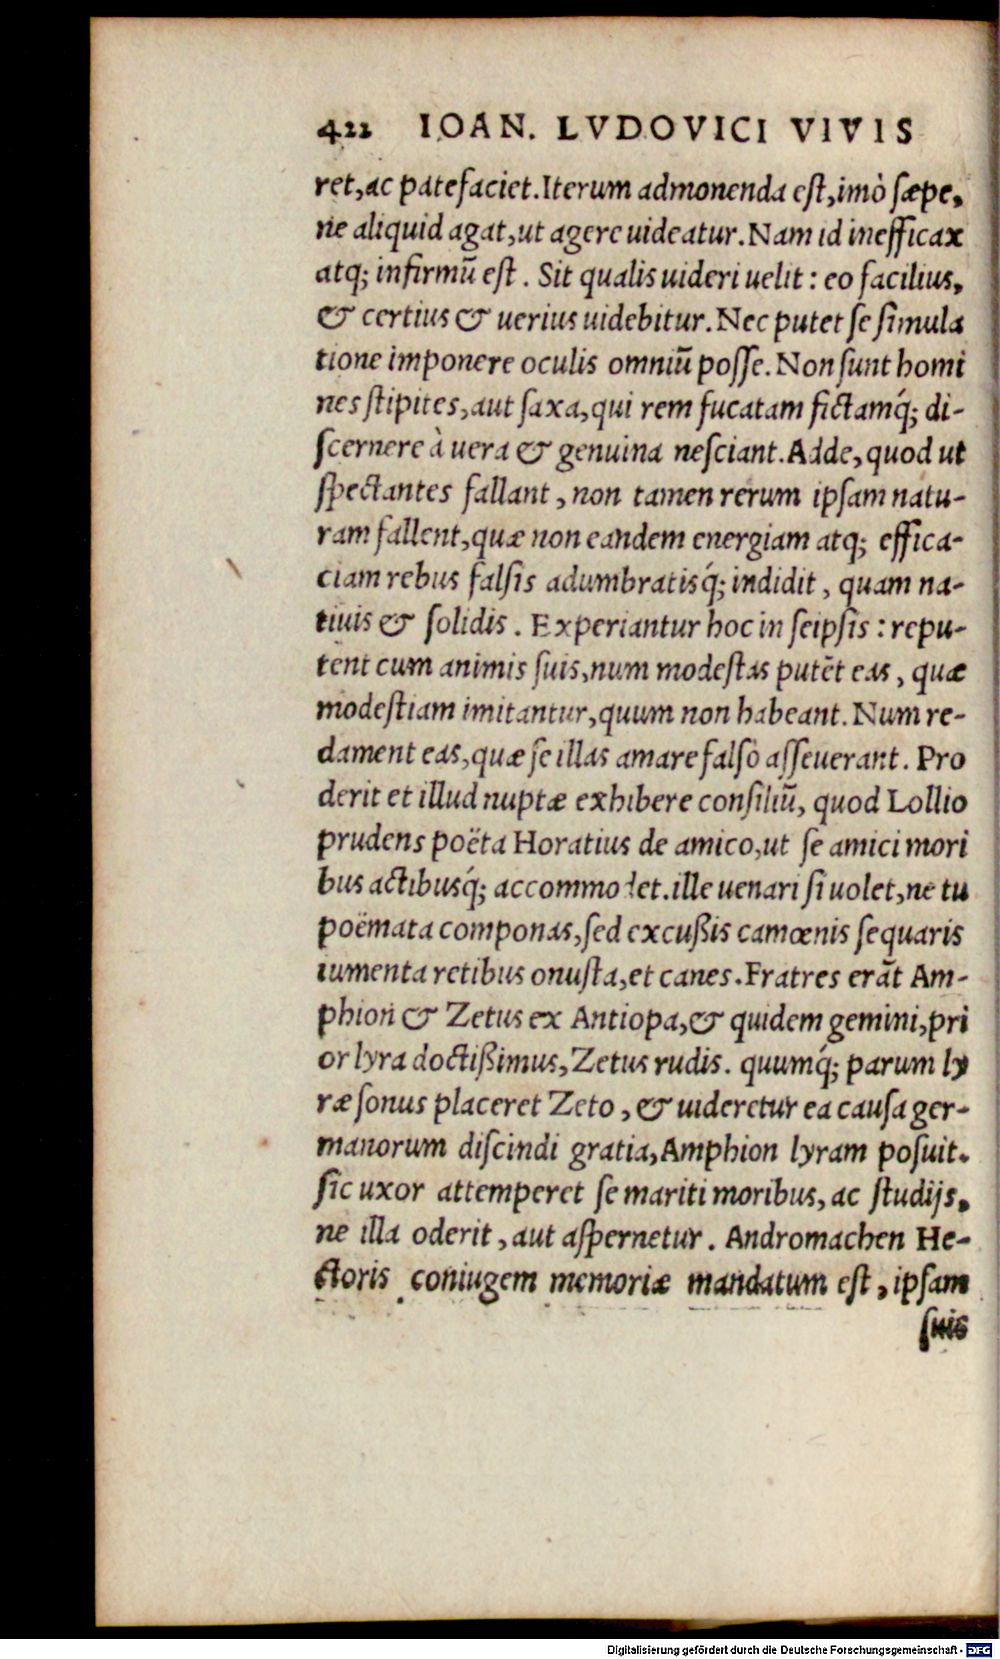 422 IOAN. LVDOVICI VIVIS
ret,ac patefaciet.Iterum admonenda eſt,imò ſæpe,
ne aliquid agat,ut agere uideatur.Nam id inefficax
atq; infirmũ eſt. Sit qualis uideri uelit: eo facilius,
& certius & uerius uidebitur.Nec putet ſe ſimula
tione imponere oculis omniũ poſſe.Non ſunt homi
nes ſtipites,aut ſaxa,qui rem fucatam fictamq́; di-
ſcernere à uera & genuina neſciant.Adde,quod ut
ſpectantes fallant, non tamen rerum ipſam natu-
ram fallent,quæ non eandem energiam atq; effica-
ciam rebus falſis adumbratisq́; indidit, quam na-
tiuis & ſolidis. Experiantur hoc in ſeipſis: repu-
tent cum animis ſuis,num modeſtas putẽt eas, quæ
modeſtiam imitantur,quum non habeant.Num re-
dament eas,quæ ſe illas amare falſò aſſeuerant. Pro
derit et illud nuptæ exhibere conſiliũ, quod Lollio
prudens poëta Horatius de amico,ut ſe amici mori
bus actibusq́; accommodet.ille uenari ſi uolet,ne tu
poëmata componas,ſed excußis camœnis ſequaris
iumenta retibus onuſta,et canes.Fratres erãt Am-
phion & Zetus ex Antiopa,& quidem gemini,pri
or lyra doctißimus,Zetus rudis. quumq́; parum ly
ræ ſonus placeret Zeto, & uideretur ea cauſa ger-
manorum diſcindi gratia,Amphion lyram poſuit.
ſic uxor attemperet ſe mariti moribus, ac ſtudijs,
ne illa oderit, aut aſpernetur. Andromachen He-
ctoris coniugem memoriæ mandatum eſt, ipſam
ſuis
Digitalisierung gefördert durch die Deutsche Forschungsgemeinschaft - DFG